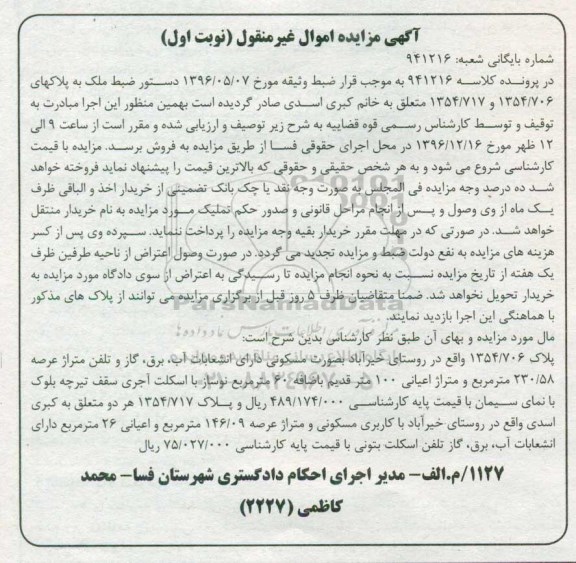 آگهی مزایده اموال غیرمنقول (نوبت اول)
شماره بایگانی شعبه: ۹۴۱۲۱۶
در پرونده کلاسه ۹۴۱۲۱۶ به موجب قرار ضبط وثیقه مورخ ۱۳۹۶/۰۵/۰۷ دستور ضبط ملک به پلاکهای
۱۳۵۴/۷۰۶ و ۱۳۵۴/۷۱۷ متعلق به خانم کبری اسدی صادر گردیده است بهمین منظور این اجرا مبادرت به
توقیف و توسط کارشناس رسمی قوه قضاییه به شرح زیر توصیف و ارزیابی شده و مقرر است از ساعت ۹ الی
۱۲ ظهر مورخ ۱۳۹۶/۱۲/۱۶ در محل اجرای حقوقی فسا از طریق مزایده به فروش برسد. مزایده با قیمت
کارشناسی شروع می شود و به هر شخص حقیقی و حقوقی که بالاترین قیمت را پیشنهاد نماید فروخته خواهد
شد ده درصد وجه مزایده فی المجلس به صورت وجه نقد یا چک بانک تضمینی از خریدار اخذ و الباقی ظرف
یک ماه از وی وصول و پس از انجام مراحل قانونی و صدور حکم تملیک مورد مزایده به نام خریدار منتقل
خواهد شد. در صورتی که در مهلت مقرر خریدار بقیه وجه مزایده را پرداخت ننماید. سپرده وی پس از کسر
هزینه های مزایده به نفع دولت ضبط و مزایده تجدید می گردد. در صورت وصول اعتراض از ناحیه طرفین ظرف
یک هفته از تاریخ مزایده نسبت به نحوه انجام مزایده تا رسیدگی به اعتراض از سوی دادگاه مورد مزایده به
خریدار تحویل نخواهد شد. ضمنا متقاضیان ظرف ۵ روز قبل از برگزاری مزایده می توانند از پلاک های مذکور
با هماهنگی این اجرا بازدید نمایند.
مال مورد مزایده و بهای آن طبق نظر کارشناس بدین شرح است:
پلاک ۱۳۵۴/۷۰۶ واقع در روستای خیرآباد بصورت مسکونی دارای انشعابات آب، برق، گاز و تلفن متراژ عرصه
۲۳۰/۵۸ مترمربع و متراژ اعیانی ۱۰۰ متر قدیم باضافه ۶۰ مترمربع نوساز با اسکلت آجری سقف تیرچه بلوک
با نمای سیمان با قیمت پایه کارشناسی ۴۸۹/۱۷۴/۰۰۰ ریال و پلاک ۱۳۵۴/۷۱۷ هر دو متعلق به کبری
اسدی واقع در روستای خیرآباد با کاربری مسکونی و متراژ عرصه ۱۴۶/۰۹ مترمربع و اعیانی ۲۶ مترمربع دارای
انشعابات آب، برق، گاز تلفن اسکلت بتونی با قیمت پایه کارشناسی ۷۵/۰۲۷/۰۰۰ ریال.
۱۱۲۷/م.الف- مدیر اجرای احکام دادگستری شهرستان فسا- محمد
کاظمی (۲۲۲۷)
ParsNamadData